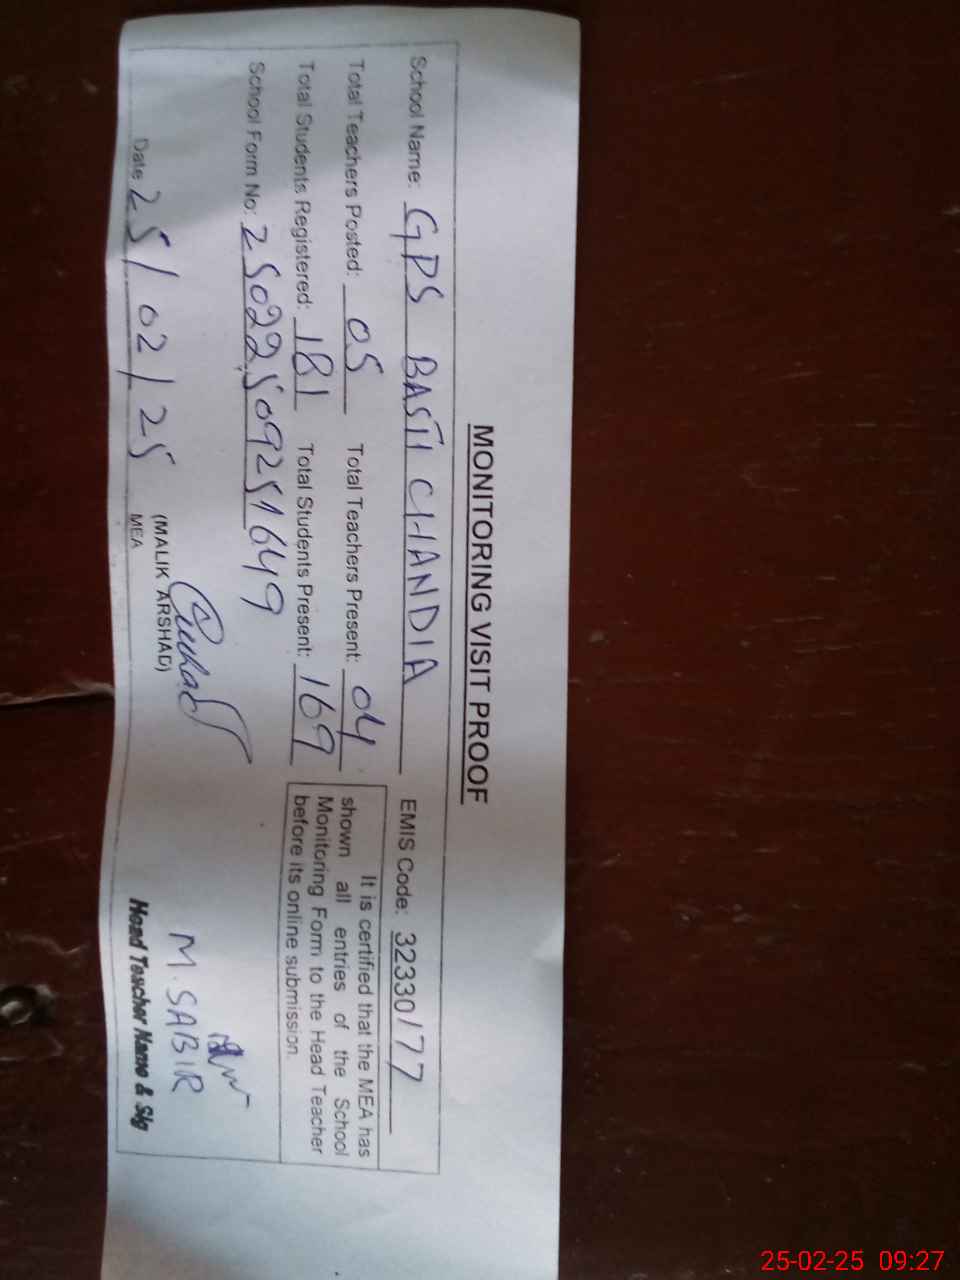 MONITORING VISIT PROOF
School Name: GPS BASTI CHANDIA EMIS Code: 32330177
Total Teachers Posted: 05 Total Teachers Present: 04
Total Students Registered: 181 Total Students Present: 169
It is certified that the MEA has
shown all entries of the School
Monitoring Form to the Head Teacher
before its online submission.
School Form No: 25022509251649
Date 25/02/25
(MALIK ARSHAD)
MEA
M. SABIR
Head Teacher Name & Sig
25-02-25 09:27